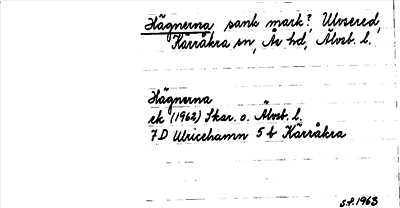 Hägnerna sank mark?, Ulvsered,
Kärråkra sn, Ås hd, Älvsb. l.
Hägnerna
ek (1962) Skar. o. Älvsb. l.
7D Ulricehamn 5 b Kärråkra
S.P. 1963